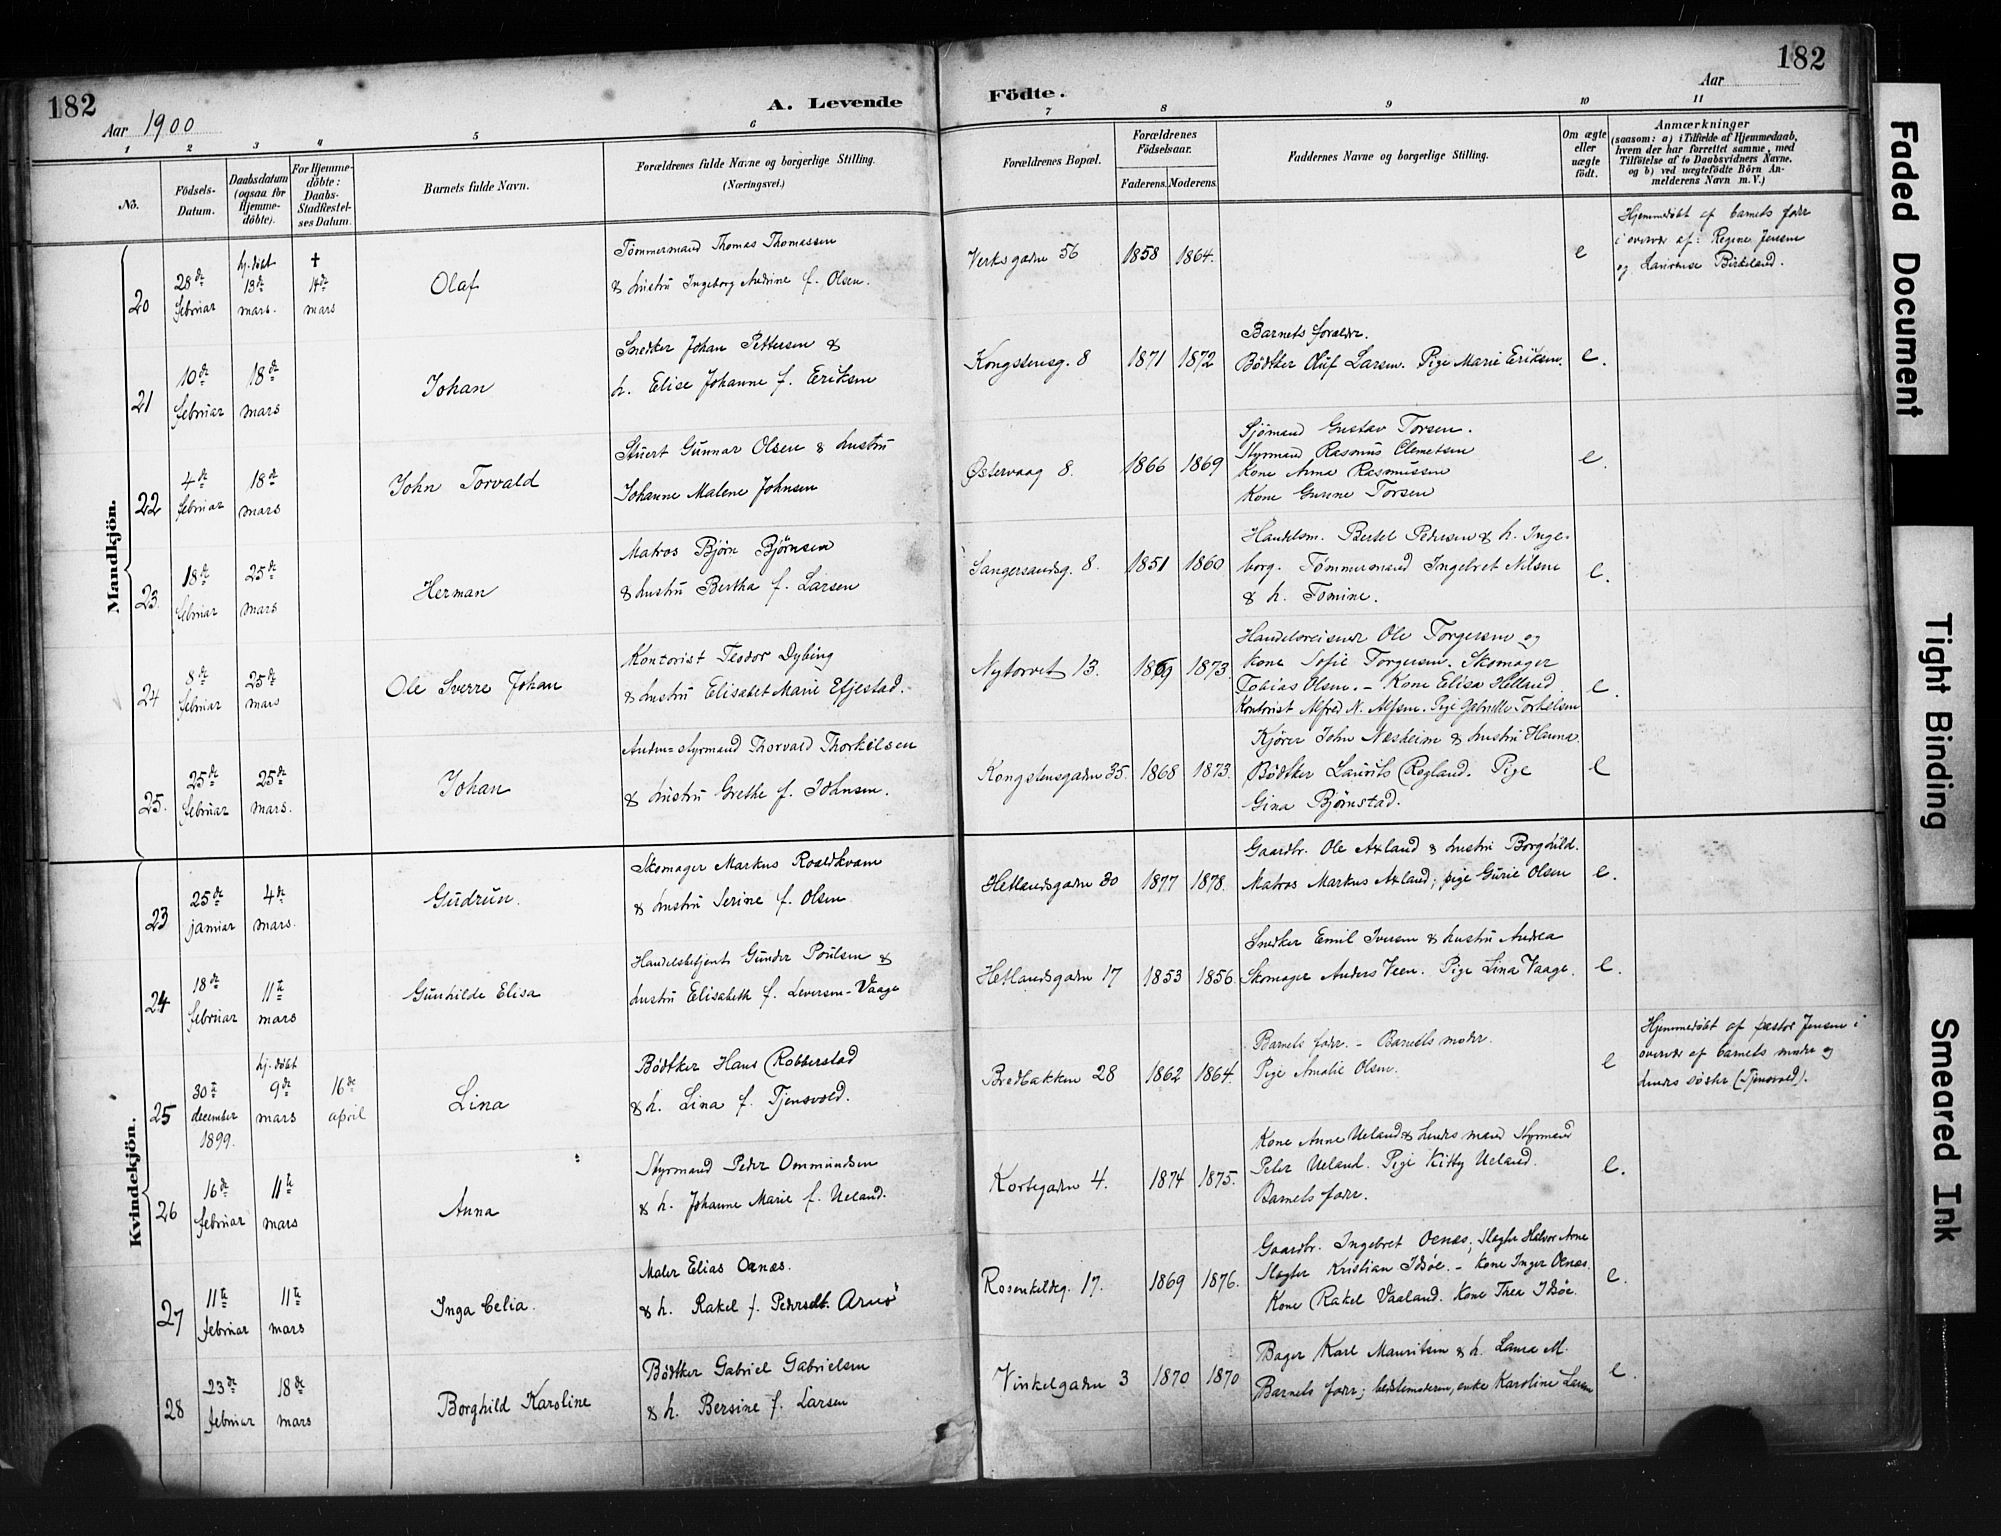 182
Aar 1900
A. Levende
Födte.
Aar
182
1 2 3 4 5 6 7 8 9 10 11
No.
Födsels-Datum.
Daabsdatum (ogsaa for Hjemmedöbte).
For Hjemmedöbte: Daabs-Stadfæstelses Datum.
Barnets fulde Navn.
Forældrenes fulde Navne og borgerlige Stilling. (Næringsvei.)
Forældrenes Bopæl.
Forældrenes Födselsaar.
Faderens. Moderens.
Faddernes Navne og borgerlige Stilling.
Om ægte eller uægte födt.
Anmærkninger
(saasom: a) i Tilfælde af Hjemmedaab, hvem der har forrettet samme, med Tilföielse af to Daabsvidners Navne. og b) ved uægtefödte Börn Anmelderens Navn m. V.)
Mandkjön.
20 28de februar hj. døbt 13de mars. † 14de mars Olaf
Tømmermand Thomas Thomassen
& hustru Ingeborg Andrine f. Olsen.
Verksgaden 56 1858 1864. e
Hjemmedøbt af barnets fader
i overvær af: Regine Jensen
og Laurense Birkeland.
21 10de februar 18de mars Johan
Snedker Johan Pettersen &
h. Elise Johanne f. Eriksen
Kongstensg. 8 1871 1872
Barnets forældre.
Bødtker Oluf Larsen. Pige Marie Eriksen. e.
22 4de februar 18de mars John Torvald
Stuert Gunnar Olsen & hustru
Johanne Malene Johnsen
Østervaag 8. 1866 1869
Sjømand Gustav Torsen.
Styrmand Rasmus Clemetsen
Kone Anna Rasmussen
Kone Gurine Torsen
e.
23. 18de februar 25de mars Herman
Matros Bjørn Bjørnsen
& hustru Bertha f. Larsen
Sangersandsg. 8. 1851 1860
Handelsm. Bertel Pedersen & h. Inge-
borg. Tømmermand Ingebret Nilsen
& h. Tomine.
e.
24 8de februar 25de mars Ole Sverre Johan
Kontorist Teodor Dybing
& hustru Elisabet Marie Efjestad.
Nytorvet 13. 1869 1873.
Handelsreisende Ole Torgersen og
kone Sofie Torgersen. Skomager
Tobias Olsen. - Kone Elisa Helland.
Kontorist Alfred N. Alfsen. Pige Gabrielle Torkelsen
e.
25. 25de februar 25de mars. Johan
Anden-styrmand Thorvald Thorkelsen
& hustru Grethe f. Johnsen.
Kongstensgaden 35. 1868 1873.
Kjører John Næsheim & hustru Hanna.
Bødtker Laurits Rogland. Pige
Gina Bjørnstad.
e
Kvindekjön.
23 25de januar 4de mars. Gudrun.
Skomager Markus Roaldkvam
& hustru Serine f. Olsen
Hetlandsgaden 30 1877 1878.
Gaardbr. Ole Axland & hustru Borghild.
Matros Markus Axland; pige Gurie Olsen e.
24 18de februar 11te mars Gunhilde Elisa
Handelsbetjent Gunder Poulsen &
hustru Elisabeth f. Seversen-Vaage
Hetlandsgaden 17 1853 1856.
Snedker Emil Iversen & hustru Andrea
Skomager Anders Veen. Pige Lina Vaage. e.
25 30te december 1899. hj. døbt 9de mars 16de april Lina
Bødtker Hans Robberstad
& h. Lina f. Tjensvold.
Bredbakken 28 1862 1864.
Barnets fader. - Barnets moder.
Pige Amalie Olsen.
e
Hjemmedøbt af pastor Jensen i
overvær af barnets moder og
hendes søster (Tjensvold).
26 16de februar 11te mars Anna
Styrmand Peder Ommundsen
& h. Johanne Marie f. Ueland.
Kortegaden 4. 1874 1875.
Kone Anne Ueland & hendes mand Styrmand
Peter Ueland. Pige Kitty Ueland.
Barnets fader.
e.
27 11te februar 11te mars Inga Celia.
Maler Elias Oenæs.
& h. Rakel f. Pedersdt. Arnes
Rosenkildeg. 17. 1869 1876.
Gaardbr. Ingebret Oenæs; Slagter Halvor Arne
Slagter Kristian Idsøe. - Kone Inger Oenæs.
Kone Rakel Vaaland. Kone Thea Idsøe.
e.
28 23de februar 18de mars Borghild Karoline
Bødtker Gabriel Gabrielsen
& h. Bersine f. Larsen
Vinkelgaden 3 1870 1870
Bager Karl Mauritsen & h. Laura M.
Barnets fader; bedstemoderen, enke Karoline Larsen
e.
Faded Document
Tight Binding
Smeared Ink